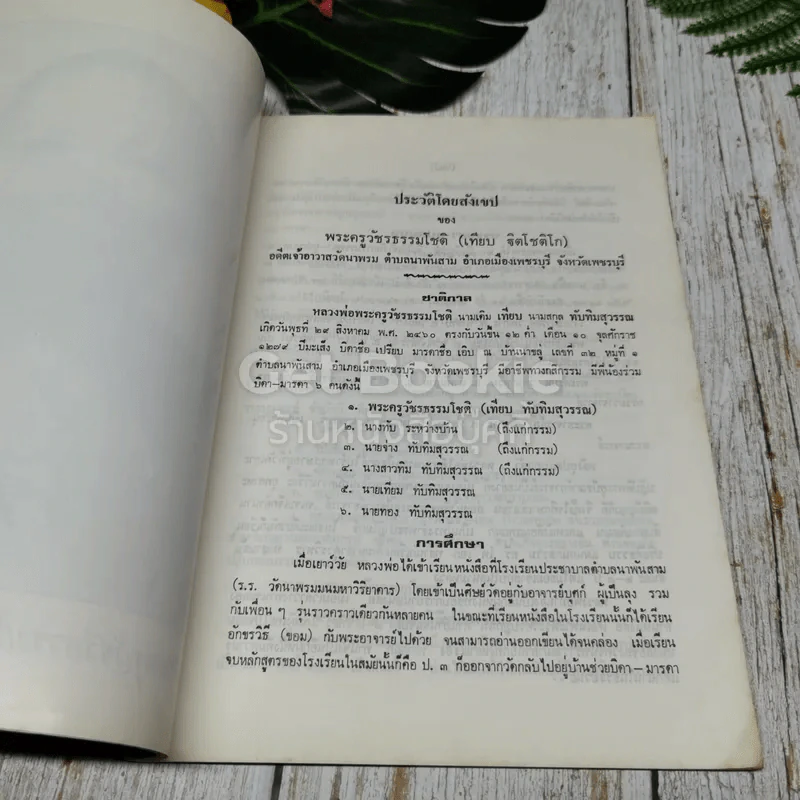 ประวัติโดยสังเขป
ของ
พระครูวัชรธรรมโชติ (เทียบ ฐิตโชติโก)
อดีตเจ้าอาวาสวัดนาพรม ตำบลนาพันสาม อำเภอเมืองเพชรบุรี จังหวัดเพชรบุรี
ชาติกาล
หลวงพ่อพระครูวัชรธรรมโชติ นามเดิม เทียบ นามสกุล ทับทิมสุวรรณ
เกิดวันพุธที่ ๒๙ สิงหาคม พ.ศ. ๒๔๖๐ ตรงกับวันขึ้น ๑๒ ค่ำ เดือน ๑๐ จุลศักราช
๑๒๗๙ ปีมะเส็ง บิดาชื่อ เปรียบ มารดาชื่อ เอิบ ณ บ้านนาขลู่ เลขที่ ๓๒ หมู่ที่ ๑
ตำบลนาพันสาม อำเภอเมืองเพชรบุรี จังหวัดเพชรบุรี มีอาชีพทางกสิกรรม มีพี่น้องร่วม
บิดา–มารดา ๖ คนดังนี้
๑. พระครูวัชรธรรมโชติ (เทียบ ทับทิมสุวรรณ)
๒. นางทับ ระหว่างบ้าน (ถึงแก่กรรม)
๓. นายจ่าง ทับทิมสุวรรณ (ถึงแก่กรรม)
๔. นางสาวทิม ทับทิมสุวรรณ (ถึงแก่กรรม)
๕. นายเทียม ทับทิมสุวรรณ
๖. นายทอง ทับทิมสุวรรณ
Get Bookie
ร้านหนังสือบุคคี
การศึกษา
เมื่อเยาว์วัย หลวงพ่อได้เข้าเรียนหนังสือที่โรงเรียนประชาบาลตำบลนาพันสาม
(ร.ร. วัดนาพรมมนมหาวิริยาคาร) โดยเข้าเป็นศิษย์วัดอยู่กับอาจารย์บุศก์ ผู้เป็นลุง รวม
กับเพื่อน ๆ รุ่นราวคราวเดียวกันหลายคน ในขณะที่เรียนหนังสือในโรงเรียนนั้นก็ได้เรียน
อักขรวิธี (ขอม) กับพระอาจารย์ไปด้วย จนสามารถอ่านออกเขียนได้จนคล่อง เมื่อเรียน
จบหลักสูตรของโรงเรียนในสมัยนั้นก็คือ ป. ๓ ก็ออกจากวัดกลับไปอยู่บ้านช่วยบิดา–มารดา